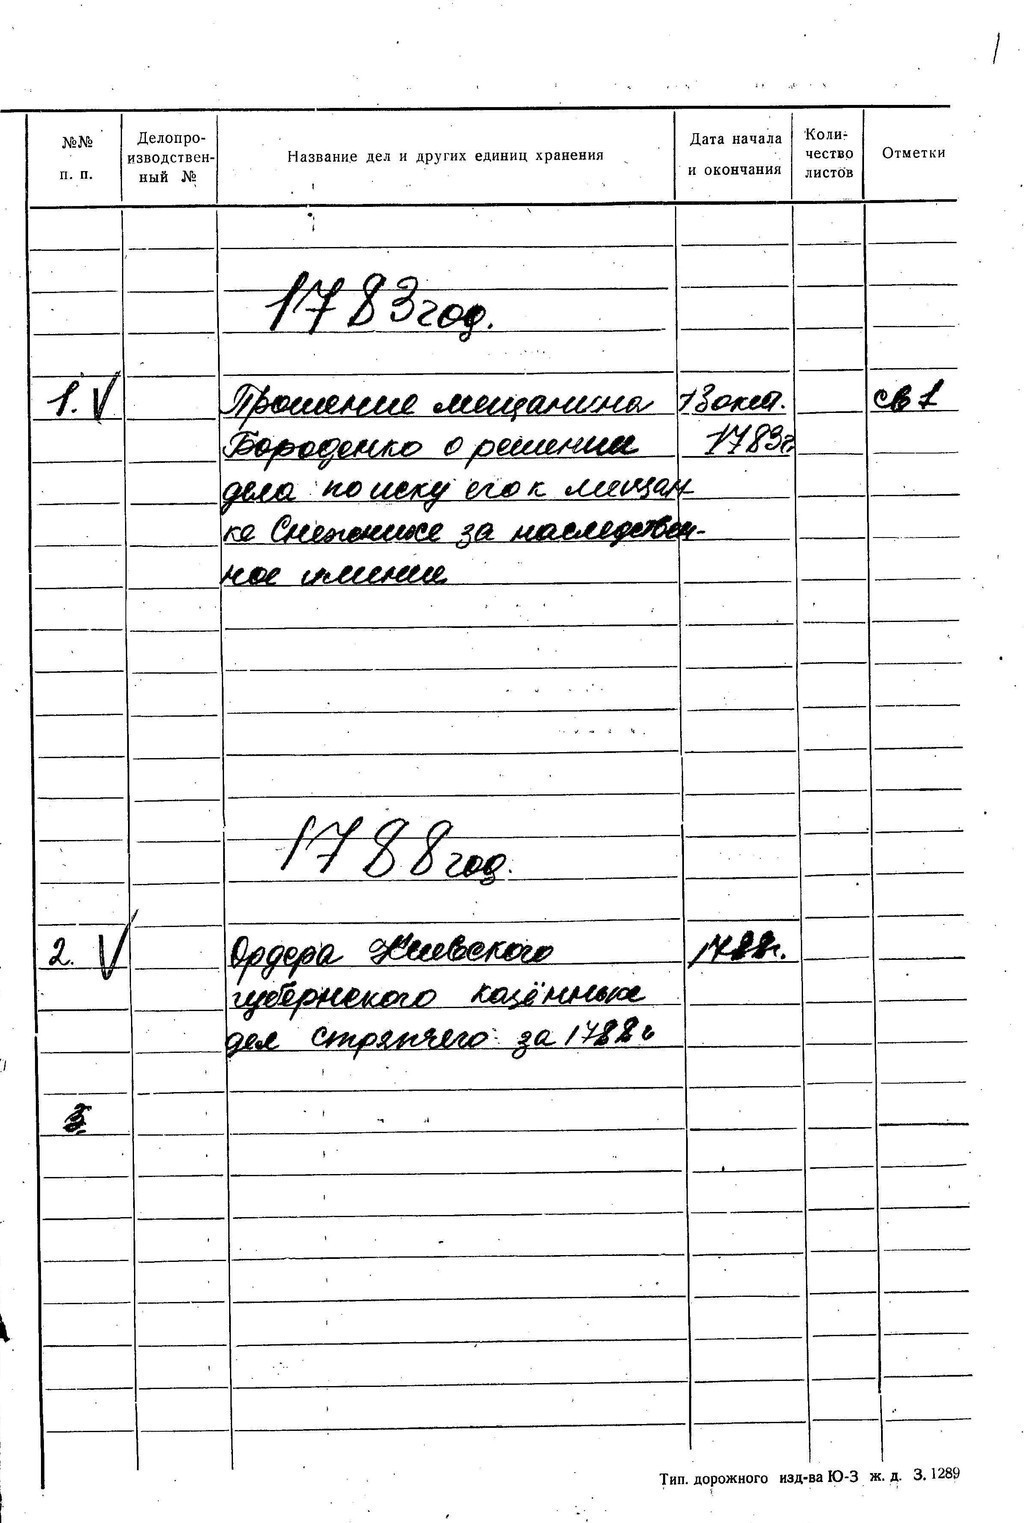 1
№№ п. п. Делопроизводственный № Название дел и других единиц хранения Дата начала и окончания Количество листов Отметки
1783 год.
1. V Прошение мещанина 13 окт. св 1
Бороденко о решении 1783 г.
дела по иску его к мещан-
ке Снежнихе за наследствен-
ное имение
1788 год.
2. V Ордера Киевского 1788 г.
губернского казённых
дел стряпчего за 1788 г
3.
Тип. дорожного изд-ва Ю-З ж. д. З. 1289